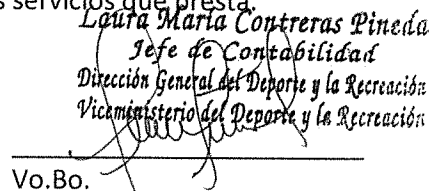 s servicios que presta.
Laura María Contreras Pineda
Jefe de Contabilidad
Dirección General del Deporte y la Recreación
Viceministerio del Deporte y la Recreación
Vo.Bo.